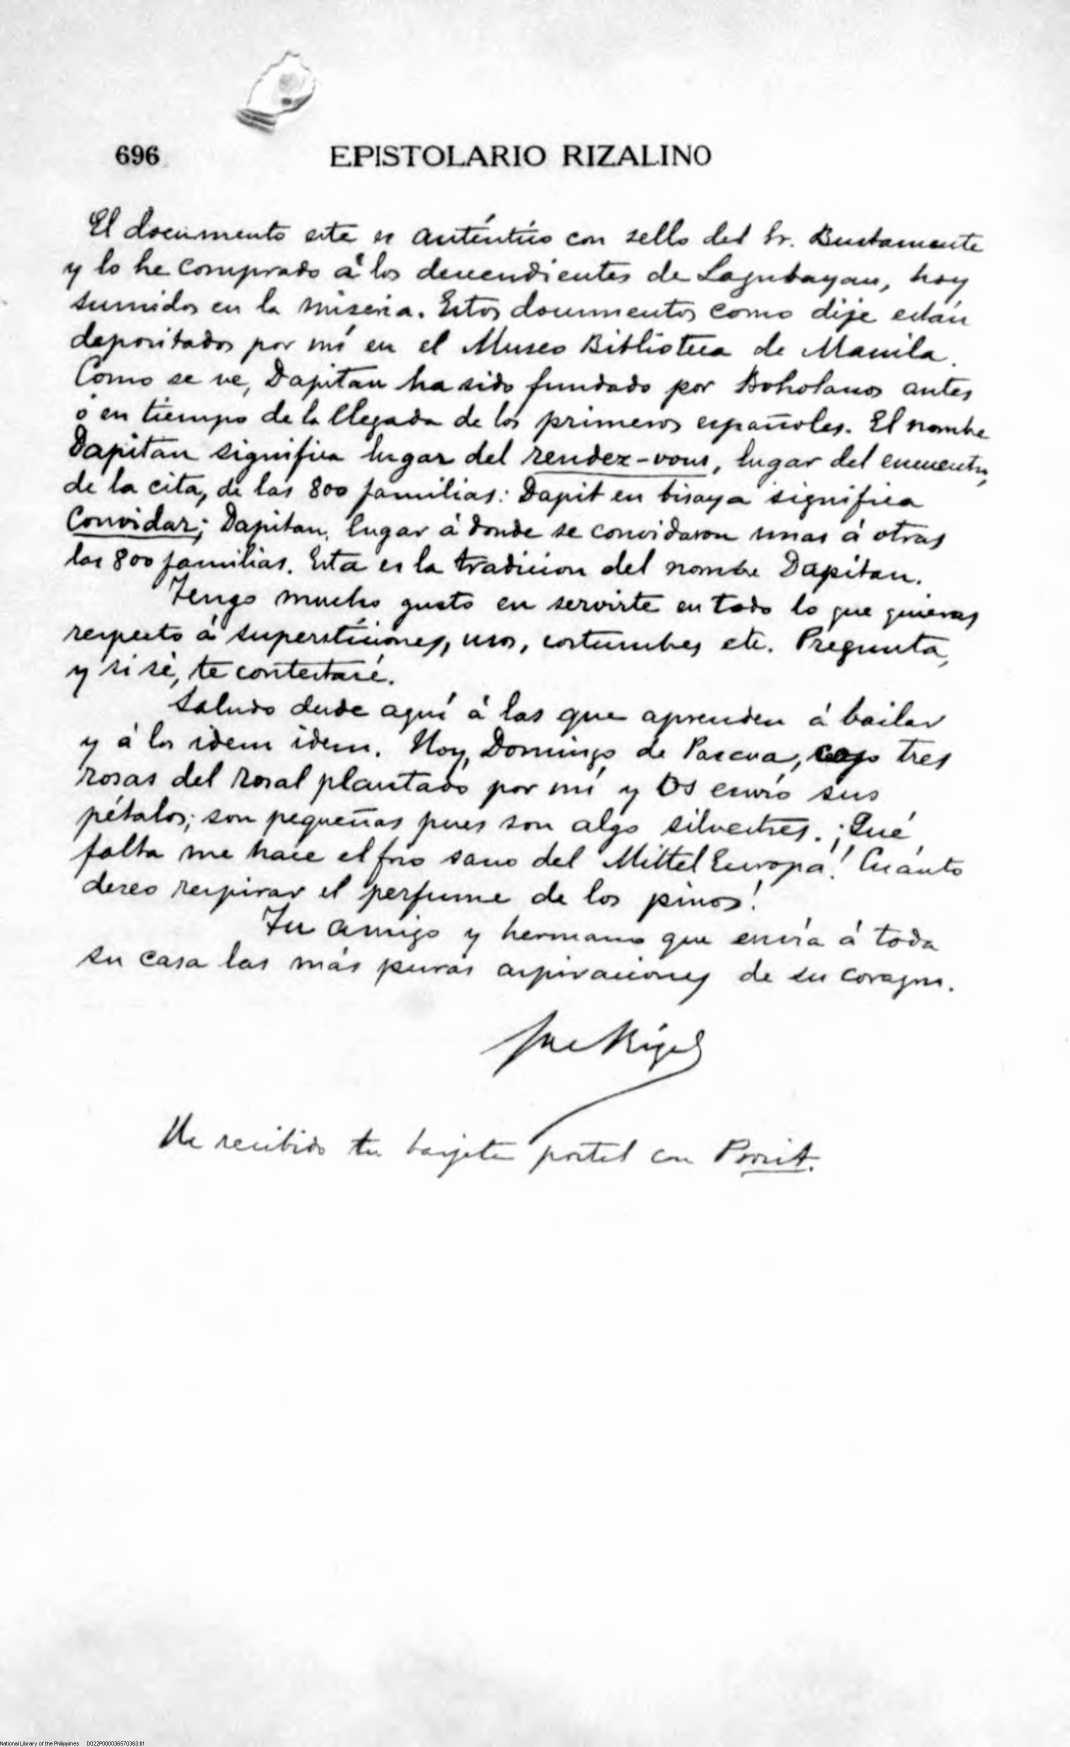 696 EPISTOLARIO RIZALINO
El documento este es auténtico con sello del Sr. Bustamante
y lo he comprado á los descendientes de Lagubayan, hoy
sumidos en la miseria. Estos documentos como dije están
depositados por mí en el Museo Biblioteca de Manila.
Como se ve, Dapitan ha sido fundado por Boholanos antes
ó en tiempo de la llegada de los primeros españoles. El nombre
Dapitan significa lugar del rendez-vous, lugar del encuentro,
de la cita, de las 800 familias: Dapit en bisaya significa
Convidar; Dapitan, lugar á donde se convidaron unas á otras
las 800 familias. Esta es la tradicion del nombre Dapitan.
Tengo mucho gusto en servirte en todo lo que quieras
respecto á supersticiones, usos, costumbres etc. Pregunta,
y si sé, te contestaré.
Saludo desde aquí á las que aprenden á bailar
y á los idem idem. Hoy, Domingo de Pascua, cojo tres
rosas del rosal plantado por mí y Os envío sus
pétalos; son pequeñas pues son algo silvestres. ¡Qué
falta me hace el frío sano del Mittel Europa! Cuánto
deseo respirar el perfume de los pinos!
Tu amigo y hermano que envía á toda
su casa las más puras aspiraciones de su corazon.
José Rizal
He recibido tu tarjeta postal con
National Library of the Philippines